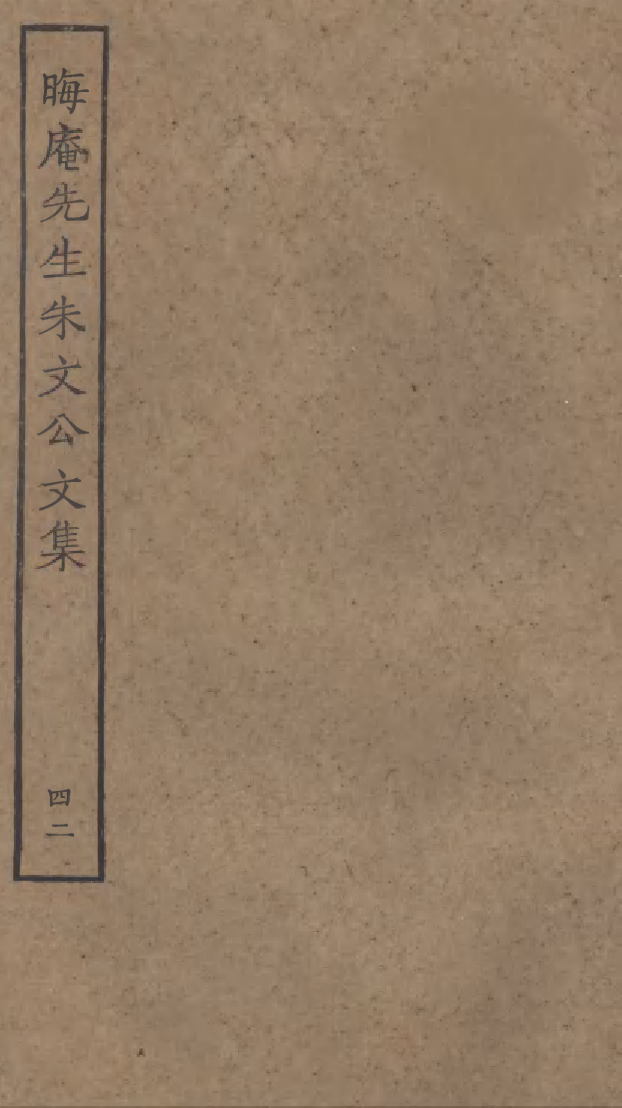 晦庵先生朱文公文集
四二